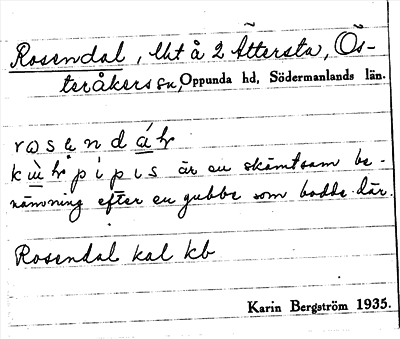 Rosendal, lht å 2 Åttersta, Ös-
teråkers sn, Oppunda hd, Södermanlands län.
kal kb
är en skämtsam be-
nämning efter en gubbe som bodde där.
Rosendal kal kb
Karin Bergström 1935.